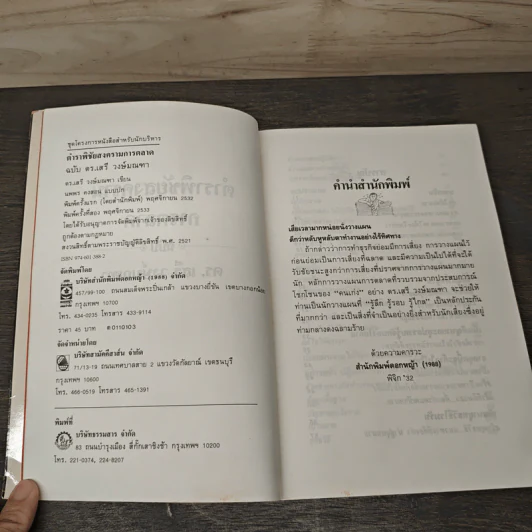 ชุดโครงการหนังสือสำหรับนักบริหาร
ตำราพิชัยสงครามการตลาด
ฉบับ ดร.เสรี วงษ์มณฑา
ดร.เสรี วงษ์มณฑา เขียน
นพพร คงสอน แบบปก
พิมพ์ครั้งแรก (โดยสำนักพิมพ์) พฤศจิกายน 2532
พิมพ์ครั้งที่สอง พฤศจิกายน 2533
โดยได้รับอนุญาตการจัดพิมพ์จากเจ้าของลิขสิทธิ์
ถูกต้องตามกฎหมาย
สงวนลิขสิทธิ์ตามพระราชบัญญัติลิขสิทธิ์ พ.ศ. 2521
ISBN 974-601-388-2
จัดพิมพ์โดย
บริษัทสำนักพิมพ์ดอกหญ้า (1988) จำกัด
457/99-100 ถนนสมเด็จพระปิ่นเกล้า แขวงบางยี่ขัน เขตบางกอกน้อย
กรุงเทพฯ 10700
โทร. 434-0235 โทรสาร 433-9114
ราคา 45 บาท
จัดจำหน่ายโดย
บริษัทสามัคคีสาส์น จำกัด
71/13-19 ถนนเทศบาลสาย 2 แขวงวัดกัลยาณ์ เขตธนบุรี
กรุงเทพฯ 10600
โทร. 466-0519 โทรสาร 465-1391
พิมพ์ที่
บริษัทธรรมสาร จำกัด
83 ถนนบำรุงเมือง สี่กั๊กเสาชิงช้า กรุงเทพฯ 10200
โทร. 221-0374, 224-8207
คำนำสำนักพิมพ์
เสียเวลามากหน่อยนั่งวางแผน
ดีกว่าหลับหูหลับตาทำงานอย่างไร้ทิศทาง
ถ้ากล่าวว่าการทำธุรกิจย่อมมีการเสี่ยง การวางแผนไว้
ก่อนย่อมเป็นการเสี่ยงที่ฉลาด และมีความเป็นไปได้ที่จะได้
รับชัยชนะสูงกว่าการเสี่ยงที่ปราศจากการวางแผนมากมาย
นัก หลักการวางแผนการตลาดที่รวบรวมจากประสบการณ์
โชกโชนของ "คนเก่ง" อย่าง ดร.เสรี วงษ์มณฑา จะช่วยให้
ท่านเป็นนักวางแผนที่ "รู้ลึก รู้รอบ รู้ไกล" เป็นหลักประกัน
ที่มากกว่า และเป็นสิ่งที่จำเป็นอย่างยิ่งสำหรับนักเสี่ยงซึ่งอยู่
ท่ามกลางดงฉลามร้าย
ด้วยความคารวะ
สำนักพิมพ์ดอกหญ้า (1988)
พิจิก '32